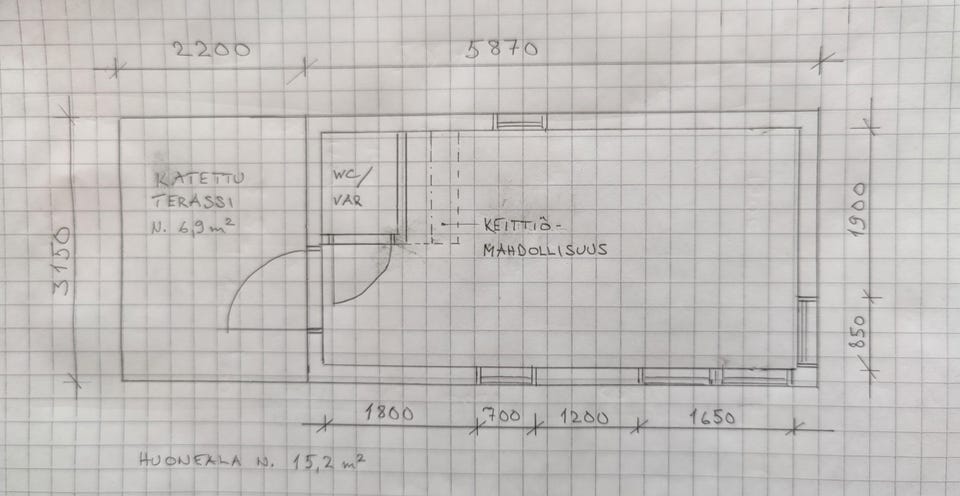 2200
5870
KATETTU
TERASSI
N. 6,9 m²
WC/
VAR
KEITTIÖ-
MAHDOLLISUUS
3150
1900
850
1800
700
1200
1650
HUONEALA N. 15,2 m²